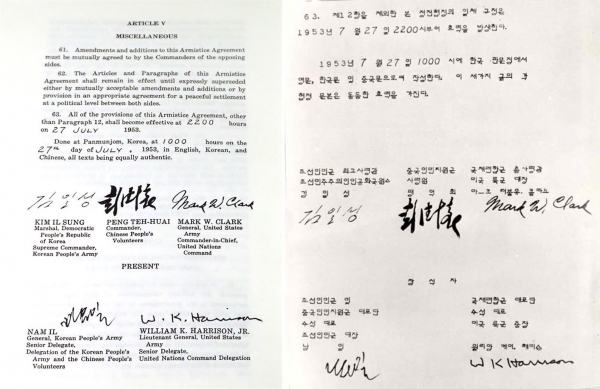 ARTICLE V
MISCELLANEOUS
61. Amendments and additions to this Armistice Agreement
must be mutually agreed to by the Commanders of the opposing
sides.
62. The Articles and Paragraphs of this Armistice
Agreement shall remain in effect until expressly superseded
either by mutually acceptable amendments and additions or by
provision in an appropriate agreement for a peaceful settlement
at a political level between both sides.
63. All of the provisions of this Armistice Agreement, other
than Paragraph 12, shall become effective at 2200 hours
on 27 JULY 1953.
Done at Panmunjom, Korea, at 1000 hours on the
27th day of JULY, 1953, in English, Korean, and
Chinese, all texts being equally authentic.
김일성 彭德懷 Mark W. Clark
KIM IL SUNG PENG TEH-HUAI MARK W. CLARK
Marshal, Democratic Commander, General, United States
People's Republic Chinese People's Army
of Korea Volunteers Commander-in-Chief,
Supreme Commander, United Nations
Korean People's Army Command
PRESENT
남일 W. K. Harrison
NAM IL WILLIAM K. HARRISON, JR.
General, Korean People's Army Lieutenant General, United States
Senior Delegate, Army
Delegation of the Korean People's Senior Delegate,
Army and the Chinese People's United Nations Command Delegation
Volunteers
63. 제12항을 제외한 본 정전협정의 일체 규정은
1953년 7월 27일 2200시부터 효력을 발생한다.
1953년 7월 27일 1000시에 한국 판문점에서
영문, 한국문 및 중국문으로써 작성한다. 이 세가지 글의 각
협정 문본은 동등한 효력을 가진다.
조선인민군 최고사령관 중국인민지원군 국제련합군 총사령관
조선민주주의인민공화국원수 사령원 미국 륙군 대장
김일성 팽덕회 마-크 더블유. 클라크
김일성 彭德懷 Mark W. Clark
참석자
조선인민군 및 국제련합군 대표단
중국인민지원군 대표단 수석 대표
수석 대표 미국 륙군 중장
조선인민군 대장
남 일 윌리암 케이. 해리슨
남일 W. K. Harrison